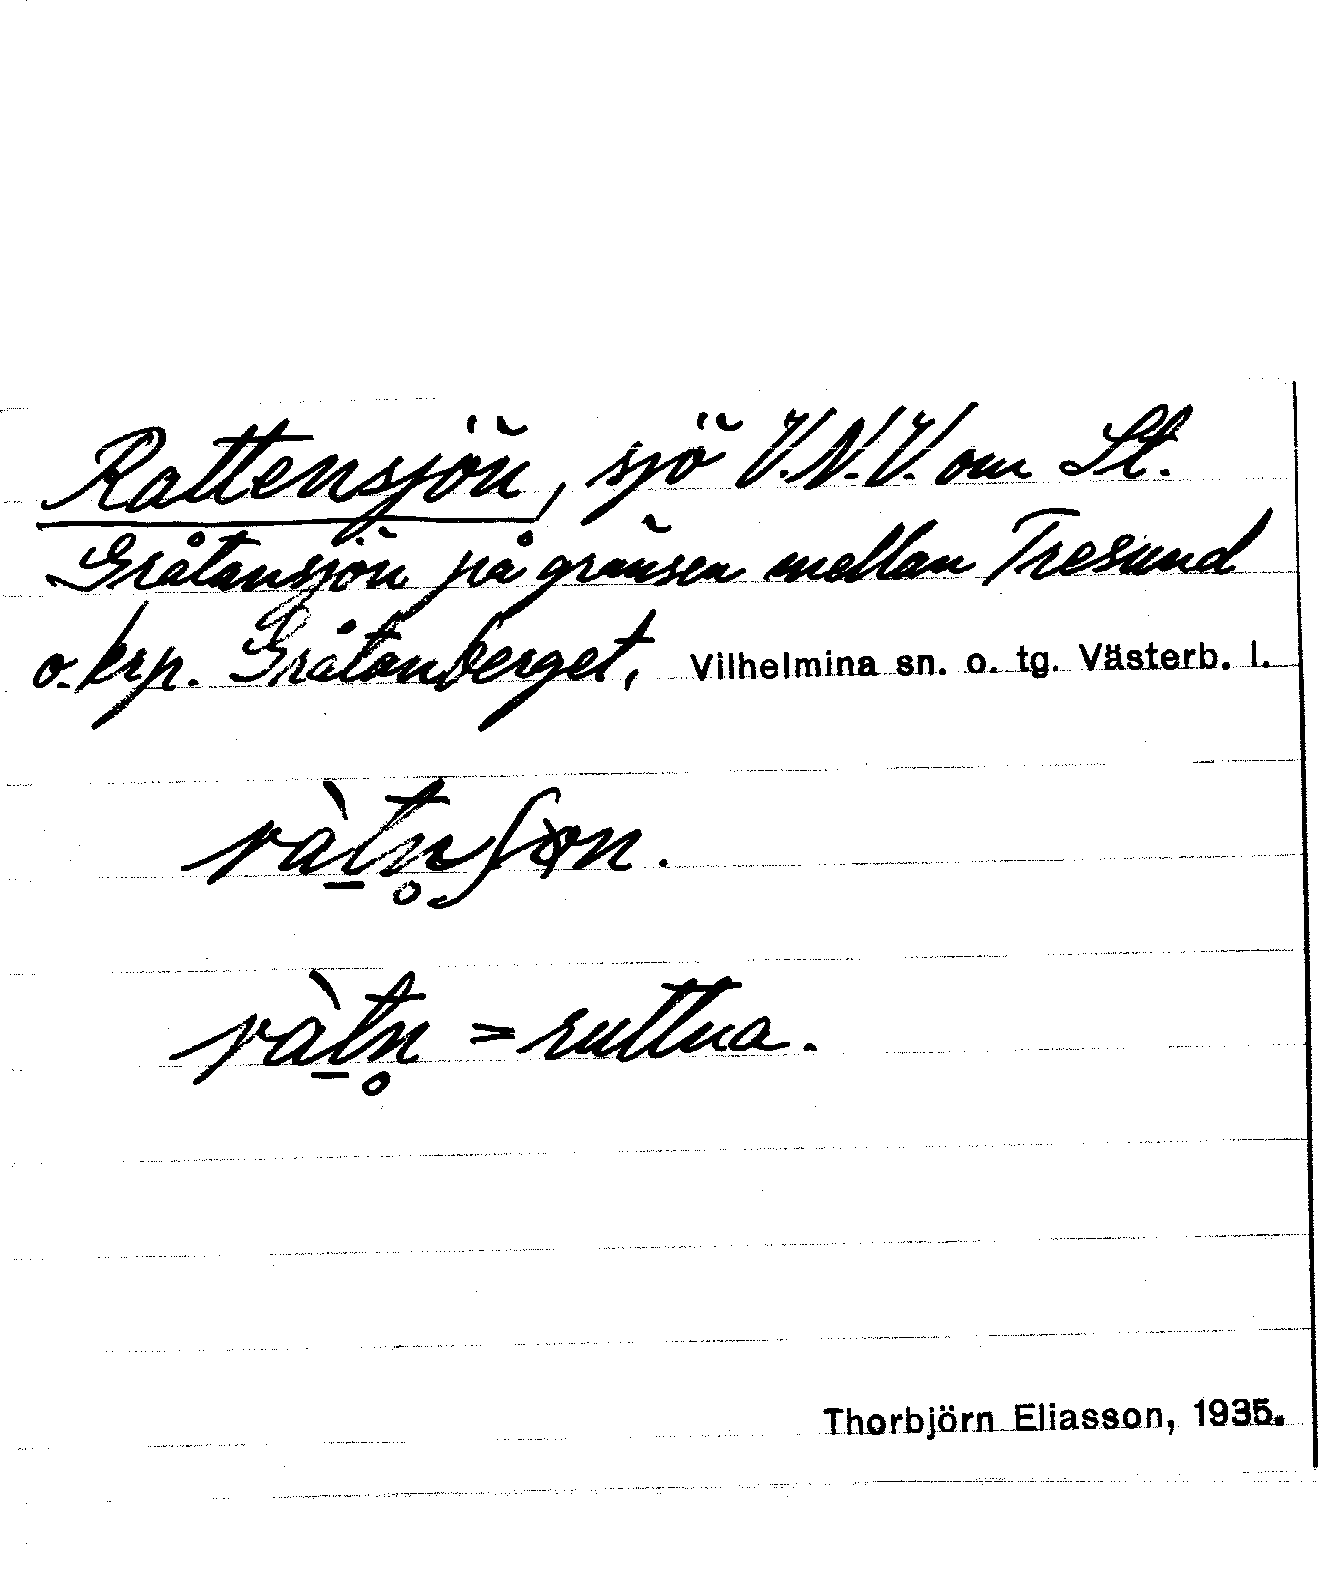 Rattensjön, sjö V.N.V. om St.
Gråtansjön på gränsen mellan Tresund
o. krp. Gråtanberget, Vilhelmina sn. o. tg. Västerb. l.
ràt̲n̥ʃøn.
ràt̲n̥ = ruttna.
Thorbjörn Eliasson, 1935.